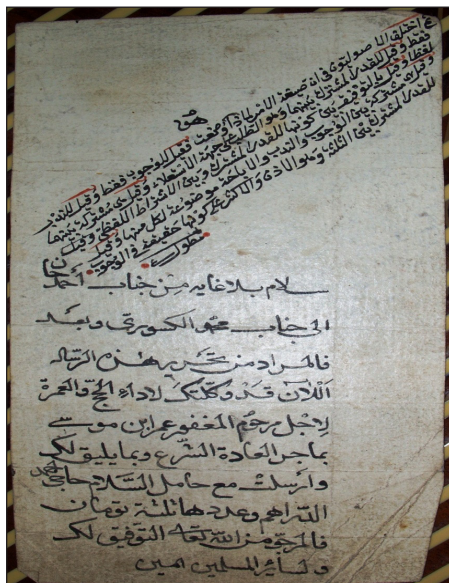 ثم اختلف الاصوليون في ان صيغة الامر لماذا وضعت فقيل للوجوب فقط وقيل للندب
فقط وقيل للقدر المشترك بينهما وهو الطلب على جهة الاستعلاء وقيل هي مشتركة بينهما
لفظا وقيل بالتوقف بين كونها للقدر المشترك وبين الاشتراك اللفظي وقيل
هي مشتركة بين الوجوب والندب والاباحة موضوعة لكل منها وقيل
للقدر المشترك بين الثلثة وهو الاذن والاكثر على كونها حقيقة في الوجوب
مطول
هو
سلام بلا غاية من جناب أحمد
الى جناب محمد وبعد
فالمراد من تحرير هذه الرسالة
اللآن قد وكلتك لاداء الحج والعمرة
لاجل مرحوم المغفور عمر ابن موسى
بما جر العادة الشرع وبما يليق لك
وارسلت مع حامل السلام حاجي احمد
الدراهم وعددها ثلثة تومان
فالمرجو من الله تعالى التوفيق لك
ولسائر المسلمين امين